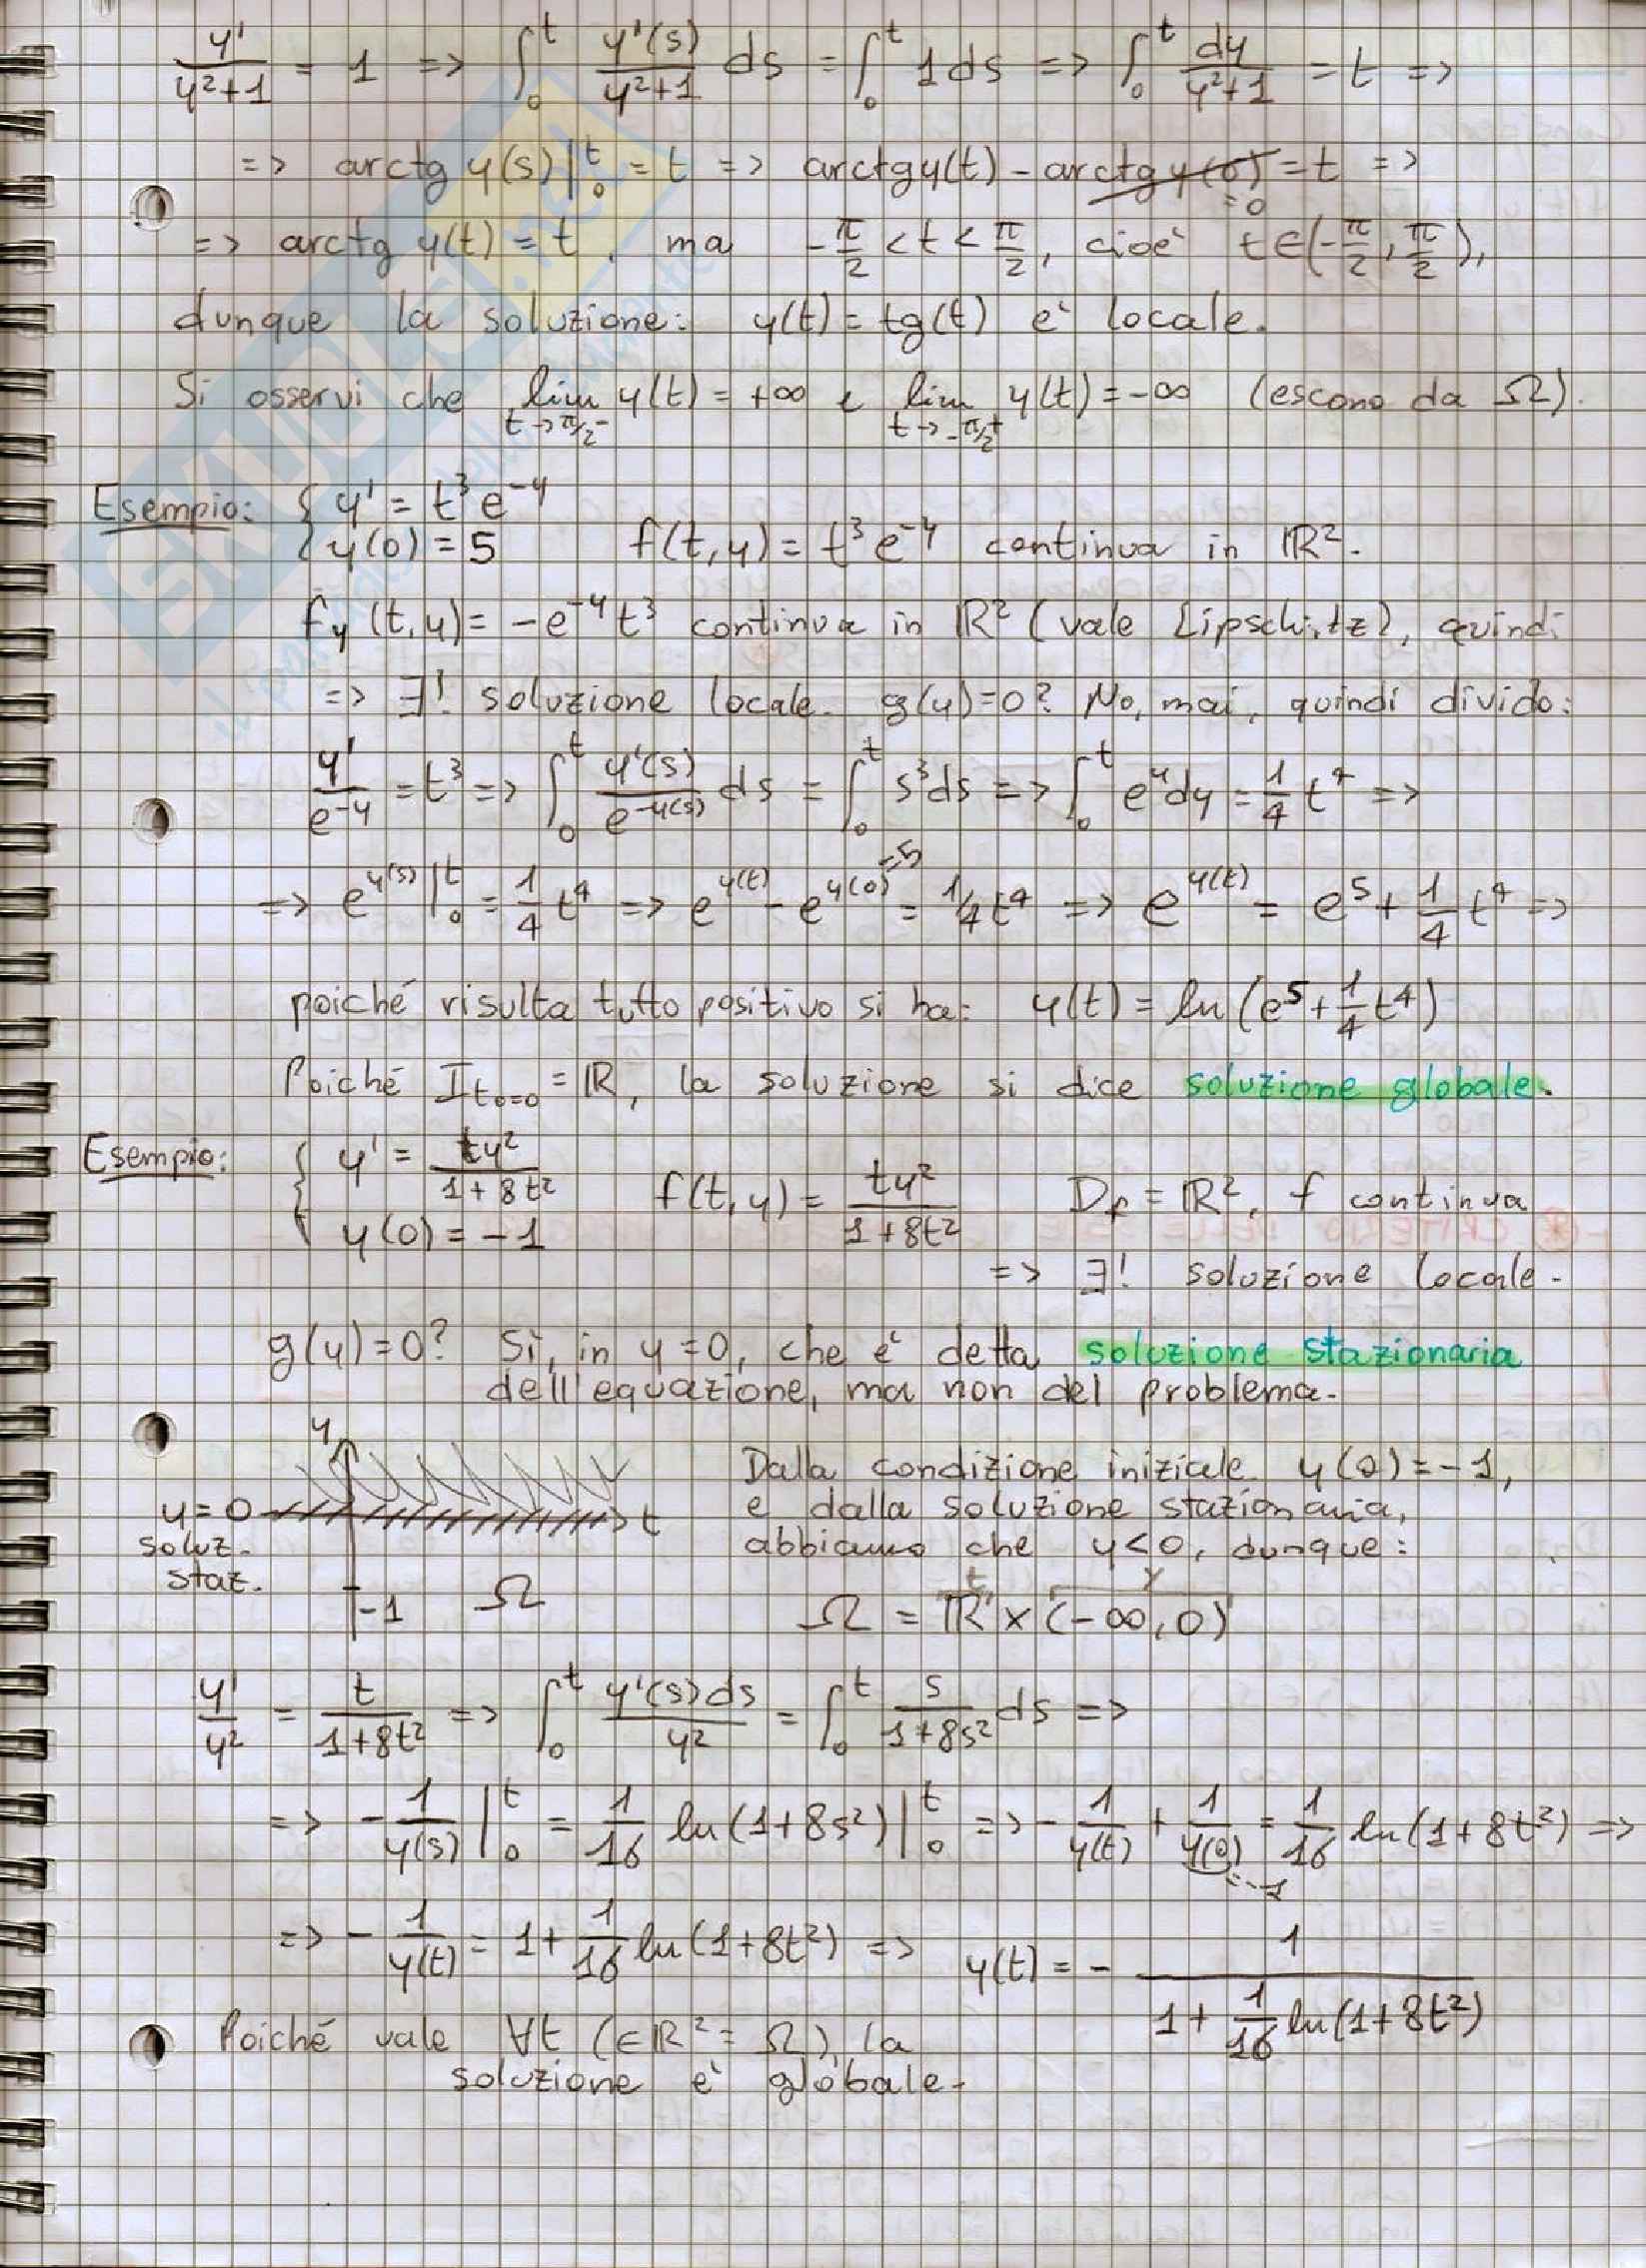 y'/(y²+1) = 1 => ∫₀ᵗ y'(s)/(y²+1) ds = ∫₀ᵗ 1 ds => ∫₀ᵗ dy/(y²+1) = t =>
=> arctg y(s)|₀ᵗ = t => arctg y(t) - arctg y(0) = t =>
= 0
=> arctg y(t) = t, ma -π/2 < t < π/2, cioè t∈(-π/2, π/2),
dunque la soluzione: y(t) = tg(t) è locale.
Si osservi che lim t→π/2⁻ y(t) = +∞ e lim t→-π/2⁺ y(t) = -∞ (escono da Ω).
Esempio: { y' = t³e⁻ʸ
{ y(0) = 5 f(t,y) = t³e⁻ʸ continua in ℝ².
f_y(t,y) = -e⁻ʸt³ continua in ℝ² (vale Lipschitz), quindi
=> ∃! soluzione locale. g(y)=0? No, mai, quindi divido:
y'/e⁻ʸ = t³ => ∫₀ᵗ y'(s)/e^(-y(s)) ds = ∫₀ᵗ s³ds => ∫₀ᵗ eʸdy = 1/4 t⁴ =>
=> e^(y(s))|₀ᵗ = 1/4 t⁴ => e^(y(t)) - e^(y(0)) = 1/4 t⁴ => e^(y(t)) = e⁵ + 1/4 t⁴ =>
=5
poiché risulta tutto positivo si ha: y(t) = ln(e⁵ + 1/4 t⁴)
Poiché I_(t₀=0) = ℝ, la soluzione si dice soluzione globale.
Esempio: { y' = ty²/(1+8t²)
{ y(0) = -1 f(t,y) = ty²/(1+8t²) D_f = ℝ², f continua
=> ∃! soluzione locale.
g(y)=0? Sì, in y=0, che è detta soluzione stazionaria
dell'equazione, ma non del problema.
y
y=0
t
soluz.
staz.
-1 Ω
Dalla condizione iniziale y(0)=-1,
e dalla soluzione stazionaria,
abbiamo che y<0, dunque:
t y
Ω = ℝ × (-∞, 0)
y'/y² = t/(1+8t²) => ∫₀ᵗ y'(s)ds/y² = ∫₀ᵗ s/(1+8s²) ds =>
=> -1/y(s)|₀ᵗ = 1/16 ln(1+8s²)|₀ᵗ => -1/y(t) + 1/y(0) = 1/16 ln(1+8t²) =>
=-1
=> -1/y(t) = 1 + 1/16 ln(1+8t²) => y(t) = - 1/(1 + 1/16 ln(1+8t²))
Poiché vale ∀t (∈ℝ² = Ω), la
soluzione è globale.